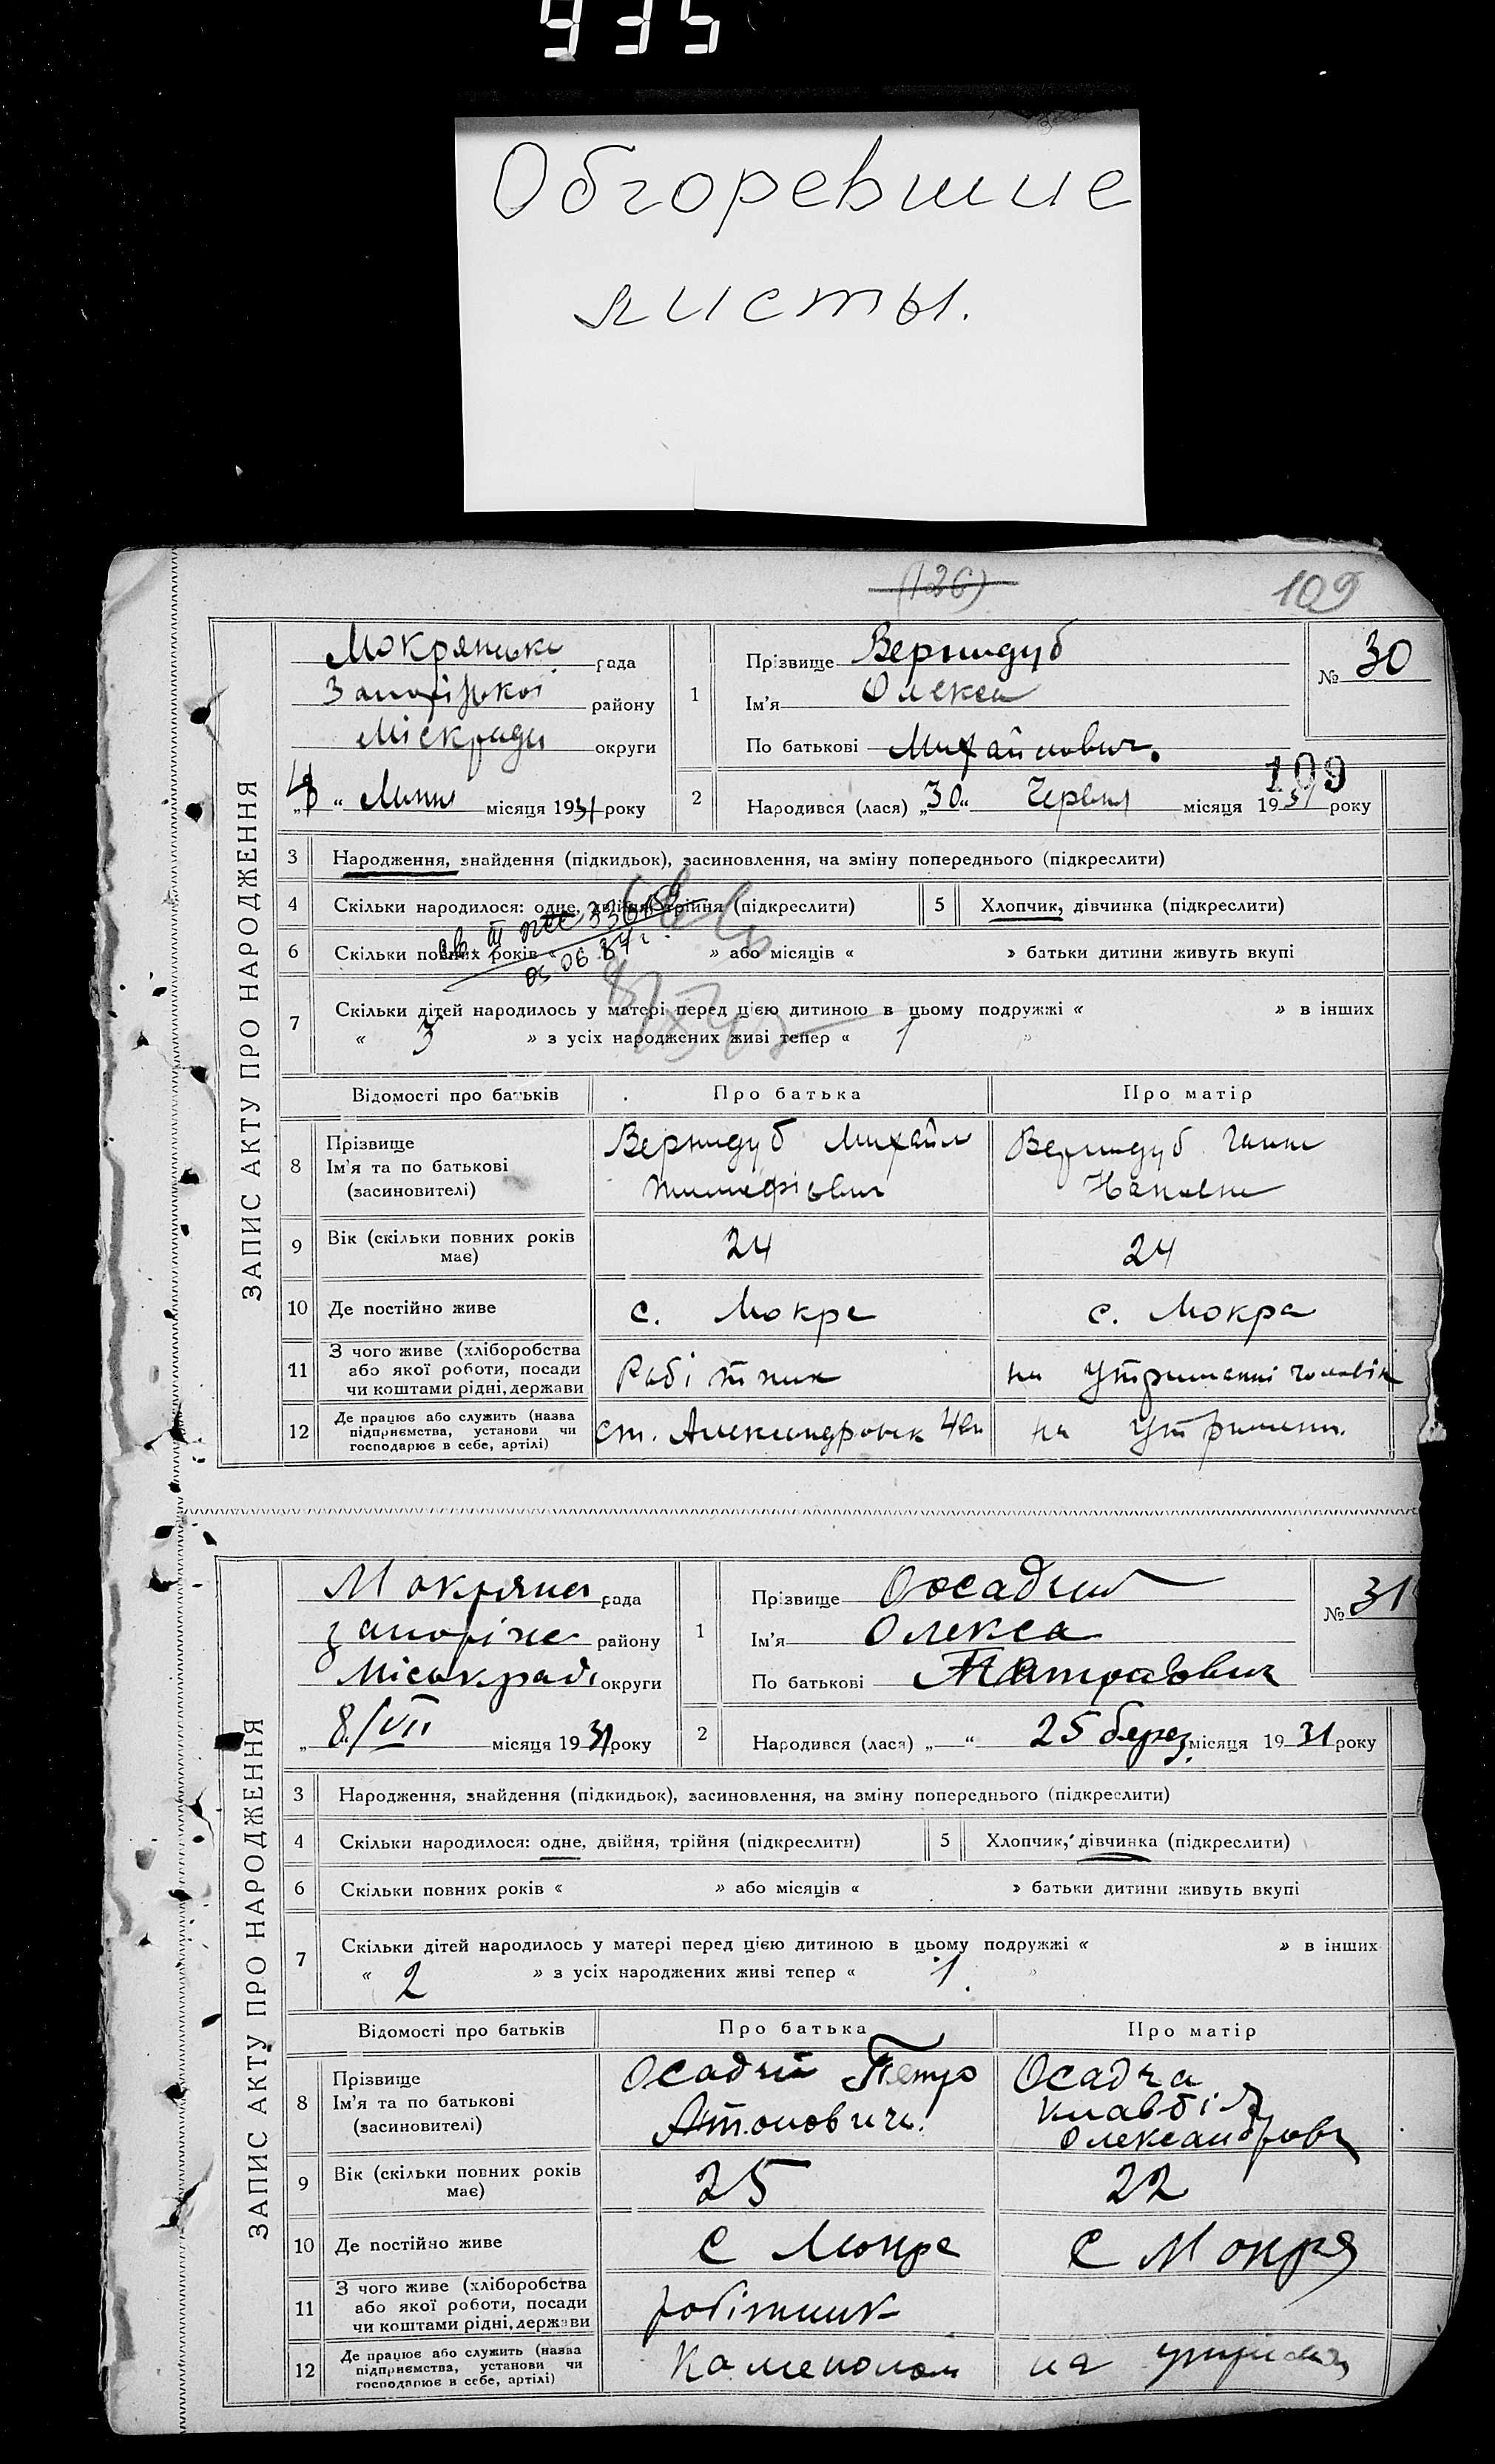 935
Обгоревшие
листы.
(126)
109
ЗАПИС АКТУ ПРО НАРОДЖЕННЯ
Мокрянська рада
району
Міскради округи
„ “ Липня місяця 1931 року
1
Прізвище Вернидуб
Ім'я Олекса
По батькові Михайлович.
№ 30
109
2
Народився (лася) „30“ Червня місяця 1931 року
3 Народження, знайдення (підкидьок), засиновлення, на зміну попереднього (підкреслити)
4 Скільки народилося: одне, двійня, трійня (підкреслити)
5 Хлопчик, дівчинка (підкреслити)
6 Скільки повних років « » або місяців « » батьки дитини живуть вкупі
05 06 84 г.
7 Скільки дітей народилось у матері перед цією дитиною в цьому подружжі « » в інших
« 3 » з усіх народжених живі тепер « 1 »
Відомості про батьків Про батька Про матір
8 Прізвище
Ім'я та по батькові
(засиновителі)
Вернидуб Михайло
Вернидуб Ганна
9 Вік (скільки повних років
має)
24
24
10 Де постійно живе
с. Мокре
с. Мокра
11 З чого живе (хліборобства
або якої роботи, посади
чи коштами рідні, держави
Робітник
на утриманні чоловіка
12 Де працює або служить (назва
підприємства, установи чи
господарює в себе, артілі)
ст. Александровськ
на утриманн.
ЗАПИС АКТУ ПРО НАРОДЖЕННЯ
Мокряна рада
району
Міськради округи
„8/VII місяця 1931 року
1
Прізвище Осадчий
Ім'я Олекса
По батькові
№ 31
2
Народився (лася) „ “ 25 берез. місяця 1931 року
3 Народження, знайдення (підкидьок), засиновлення, на зміну попереднього (підкреслити)
4 Скільки народилося: одне, двійня, трійня (підкреслити)
5 Хлопчик, дівчинка (підкреслити)
6 Скільки повних років « » або місяців « » батьки дитини живуть вкупі
7 Скільки дітей народилось у матері перед цією дитиною в цьому подружжі « » в інших
« 2 » з усіх народжених живі тепер « 1 »
Відомості про батьків Про батька Про матір
8 Прізвище
Ім'я та по батькові
(засиновителі)
Осадчий Петро
Антонович.
Осадча
Клавдія
Олександровн
9 Вік (скільки повних років
має)
25
22
10 Де постійно живе
с Мокре
с Мокря
11 З чого живе (хліборобства
або якої роботи, посади
чи коштами рідні, держави
робітник
12 Де працює або служить (назва
підприємства, установи чи
господарює в себе, артілі)
Каменолом
на